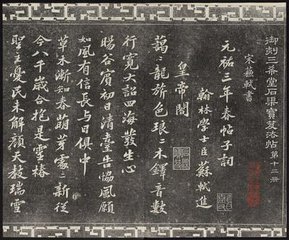 御刻三希堂石渠寶笈法帖第十三冊
宋蘇軾書
元祐三年春帖子詞
翰林學士臣蘇軾進
皇帝閣
藹〻龍旂色琅〻木鐸音數
行寬大詔四海發生心
暘谷賓初日清臺告協風願
如風有信長與日俱中
草木漸知春萌芽處〻新從
今八千歲合抱是靈椿
聖主憂民未解顏天教瑞雪